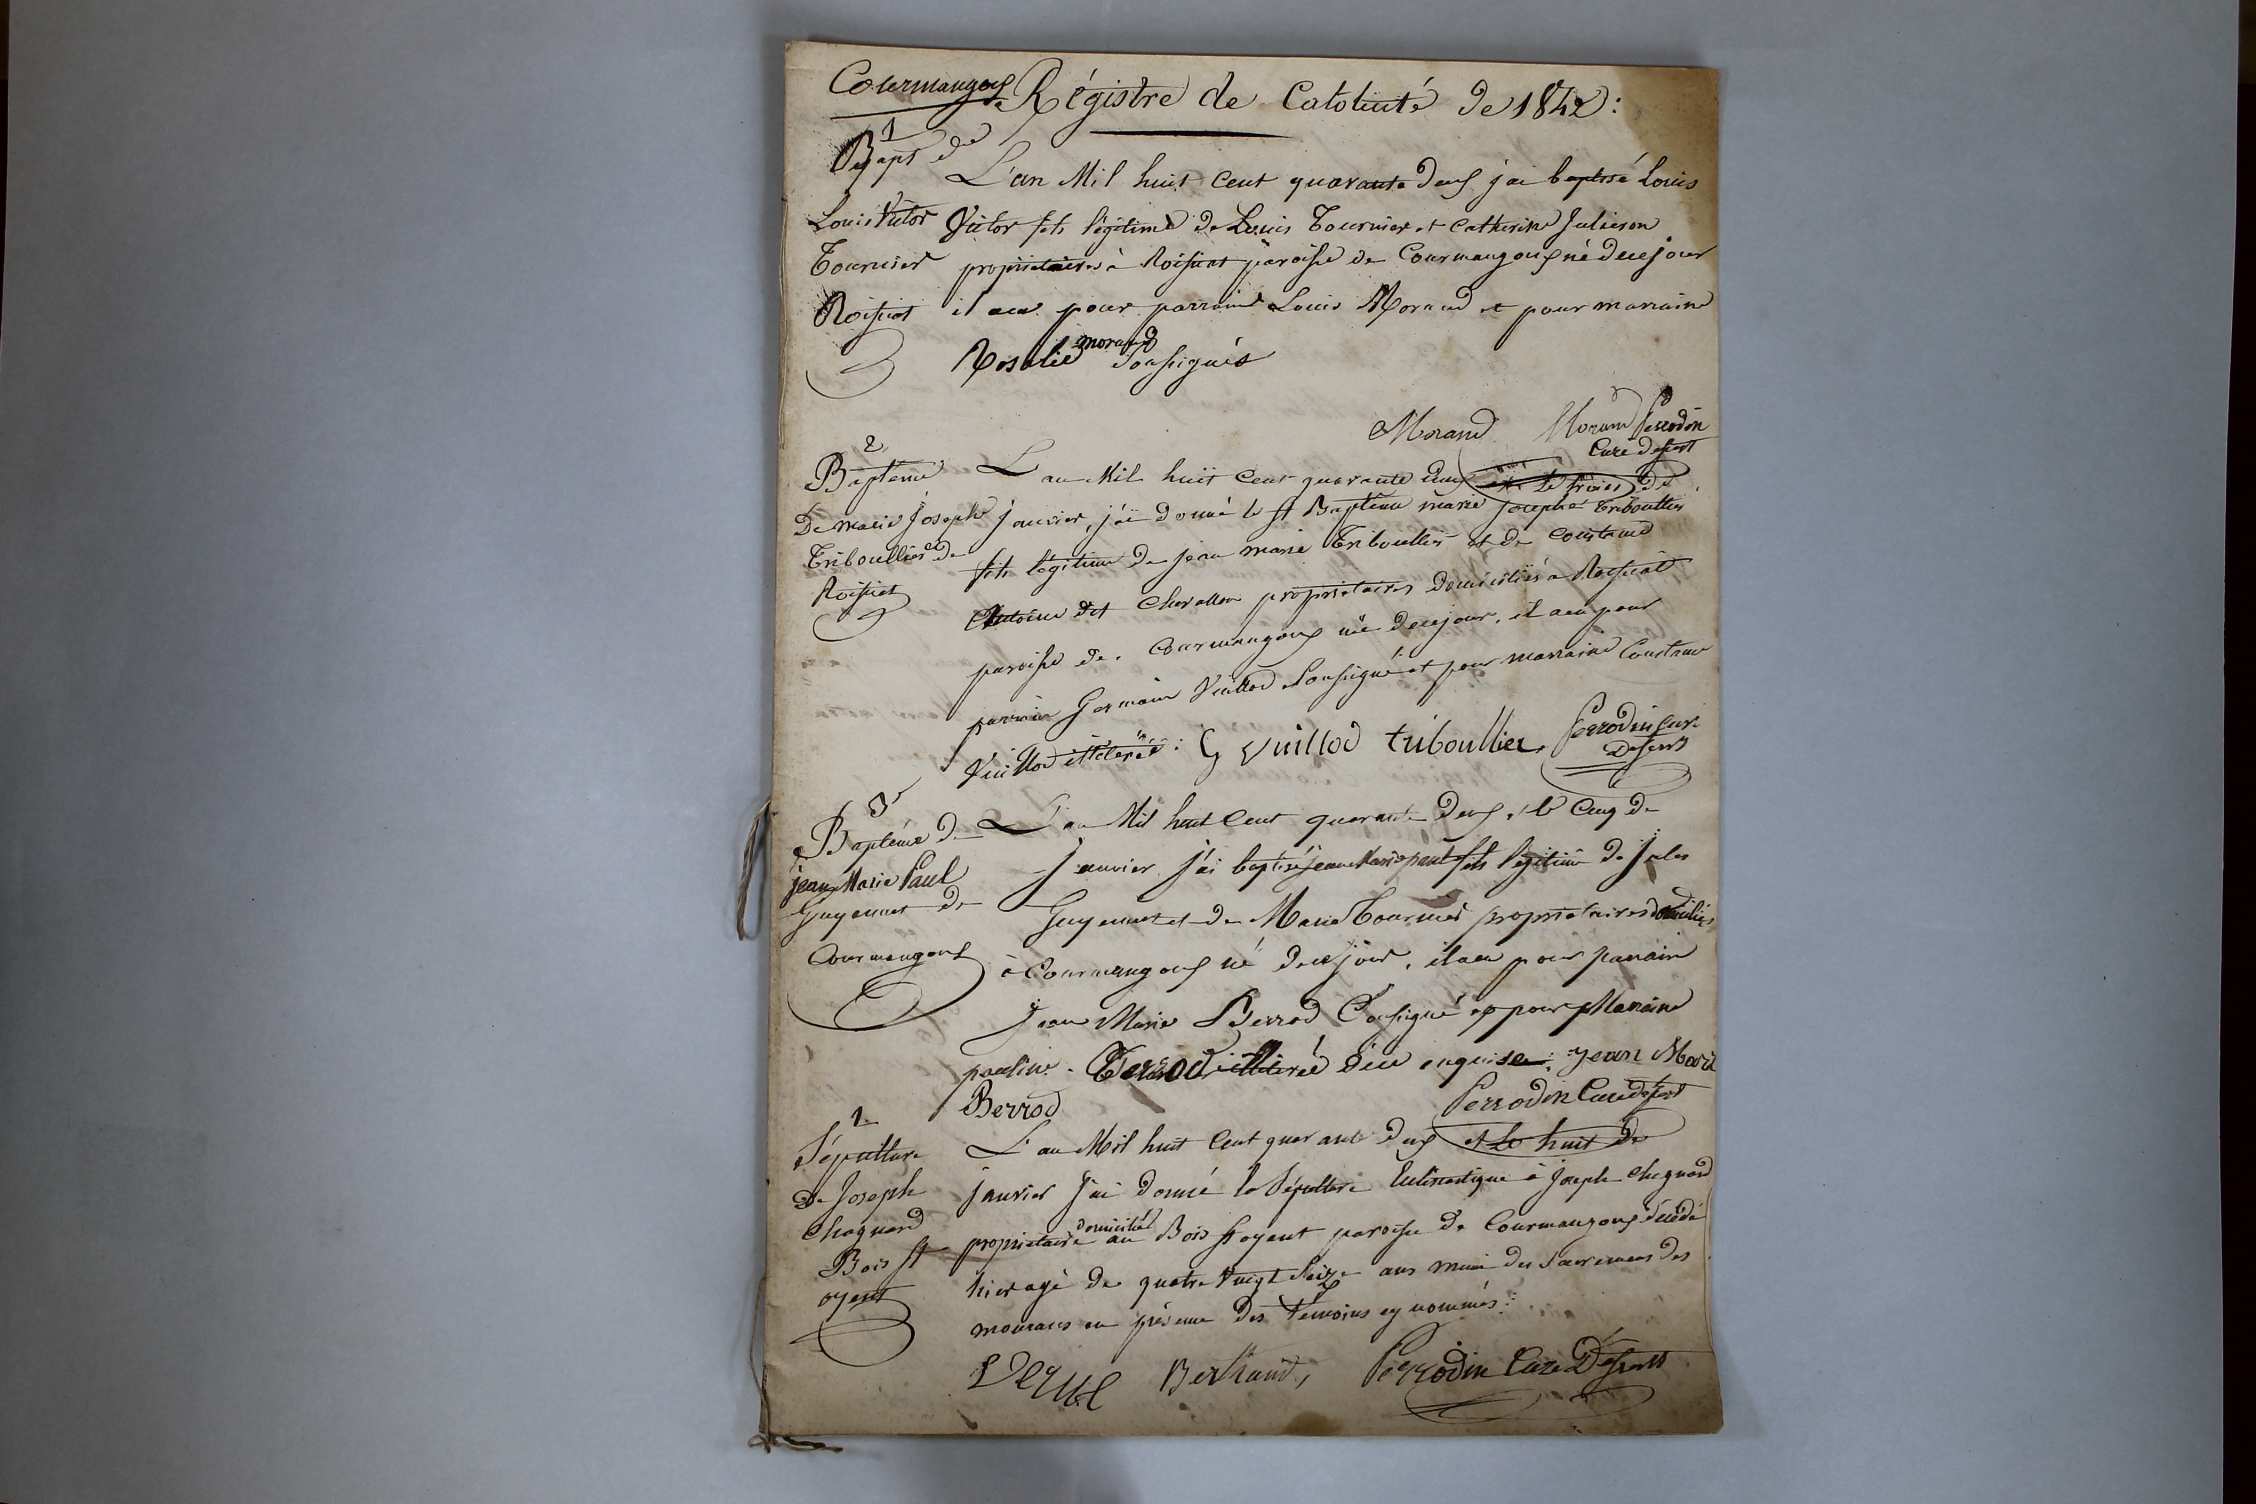 Courmangoux Régistre de Catolicité de 1842:
1
Bapt de
Louis Victor
Tournier
Roissiat
L'an Mil huit Cent quarante deux j'ai baptisé Louis
Victor fils légitime de Louis Tournier et Catherine Julieron
propriétaires à Roissiat paroisse de Courmangoux né de ce jour
il a eu pour parrain Louis Morand et pour marraine
Rosalie morand Soussignés
Morand Morand Perrodin
Curé Dessert
2
Baptême
De marie Joseph
Triboullier de
Roissiat
L'an Mil huit Cent quarante deux et le trois de
Janvier, j'ai donné le St Baptême marie Joseph Triboullier
fils légitime de jean marie Triboullier et de Constance
Antoine dit Chevallon propriétaires Domiciliés à Roissiat
paroisse de Courmangoux né de ce jour, il a eu pour
parrain Germain Vuillod Soussigné et pour marraine Constance
Vuillod illétérée : G vuillod triboullier Perrodin Curé
Dessert
3
Baptême de
jean Marie Paul
Guyennet de
Courmangoux
L'an Mil huit Cent quarante Deux, le Cinq de
Janvier j'ai baptisé jean Marie paul fils légitime de Jules
Guyennet et de Marie Tournier propriétaires domiciliés
à Courmangoux né de ce jour, il a eu pour parrain
Jean Marie Berrod Soussigné et pour Marraine
pauline Berrod illitérée de ce enquise : jean Marie
Berrod Perrodin Curé Dessert
1
Sépulture
De Joseph
Chagnard
Bois St
oyent
L'an Mil huit Cent quarante Deux et le huit De
janvier j'ai donné la Sépulture Eclésiastique à Joseph Chagnard
propriétaire domicilié au Bois St oyent paroisse de Courmangoux décédé
hier agé de quatre Vingt Seize ans muni des Sacremens des
mourans en présence Des témoins cy nommés :
Bertrand, Perrodin Curé Dessert